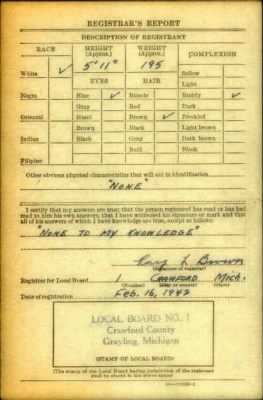 REGISTRAR'S REPORT
DESCRIPTION OF REGISTRANT
RACE HEIGHT (Approx.) WEIGHT (Approx.) COMPLEXION
White ✓ 5' 11" 195 Sallow
Light
EYES HAIR
Negro Blue ✓ Blonde Ruddy ✓
Gray Red Dark
Oriental Hazel Brown ✓ Freckled
Brown Black Light brown
Indian Black Gray Dark brown
Bald Black
Filipino
Other obvious physical characteristics that will aid in identification
"NONE"
I certify that my answers are true; that the person registered has read or has had
read to him his own answers; that I have witnessed his signature or mark and that
all of his answers of which I have knowledge are true, except as follows:
"NONE TO MY KNOWLEDGE"
(Signature of registrar)
Registrar for Local Board 1 CRAWFORD MICH.
(Number) (City or county) (State)
Date of registration FEB. 16, 1942
LOCAL BOARD NO. 1
Crawford County
Grayling, Michigan
(STAMP OF LOCAL BOARD)
(The stamp of the Local Board having jurisdiction of the registrant
shall be placed in the above space)